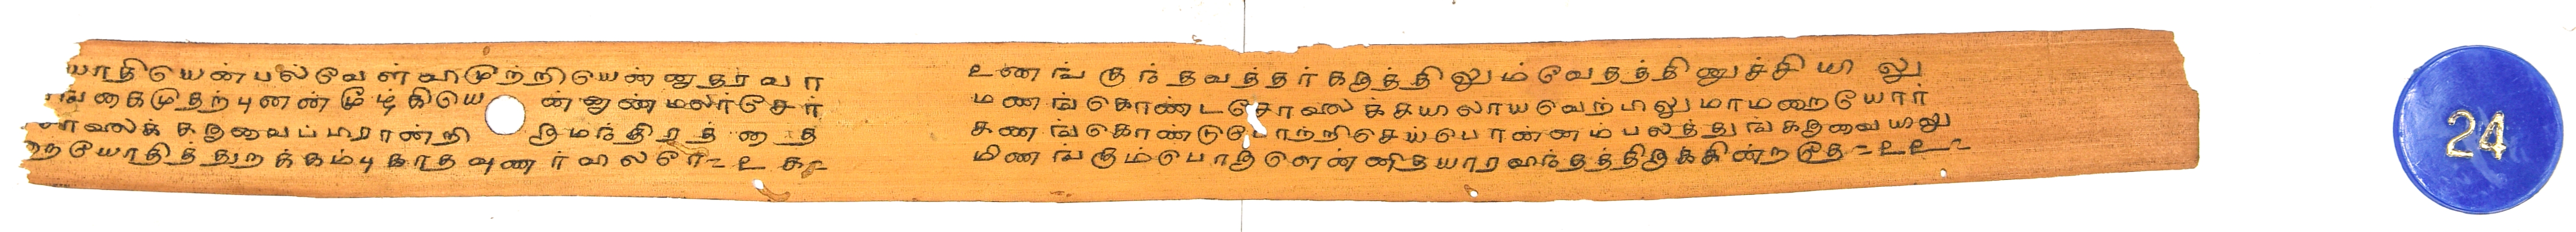 யாதியென்பல்வேள்விமுற்றியென்னுதர வா
ங்கைமுதற்புனன்மூழ்கியெ ன்னுண்மலர்சேர்
சாலைக்கருவைப்பரான்றி ருமந்திரத்தை த
றையோதித்துறக்கம்புகாதவுணர்விலரே = உக
உணங்குந்தவத்தர்கருத்திலும்வேதத்தினுச்சியிலு
மணங்கொண்டசோலைக்கயிலாயவெற்பிலுமாமறையோர்
கணங்கொண்டுபோற்றிசெய்பொன்னம்பலத்துங்கருவையிலு
மிணங்கும்பொருளென்னிதயாரவிந்தத்திருக்கின்றதே = உஉ
24